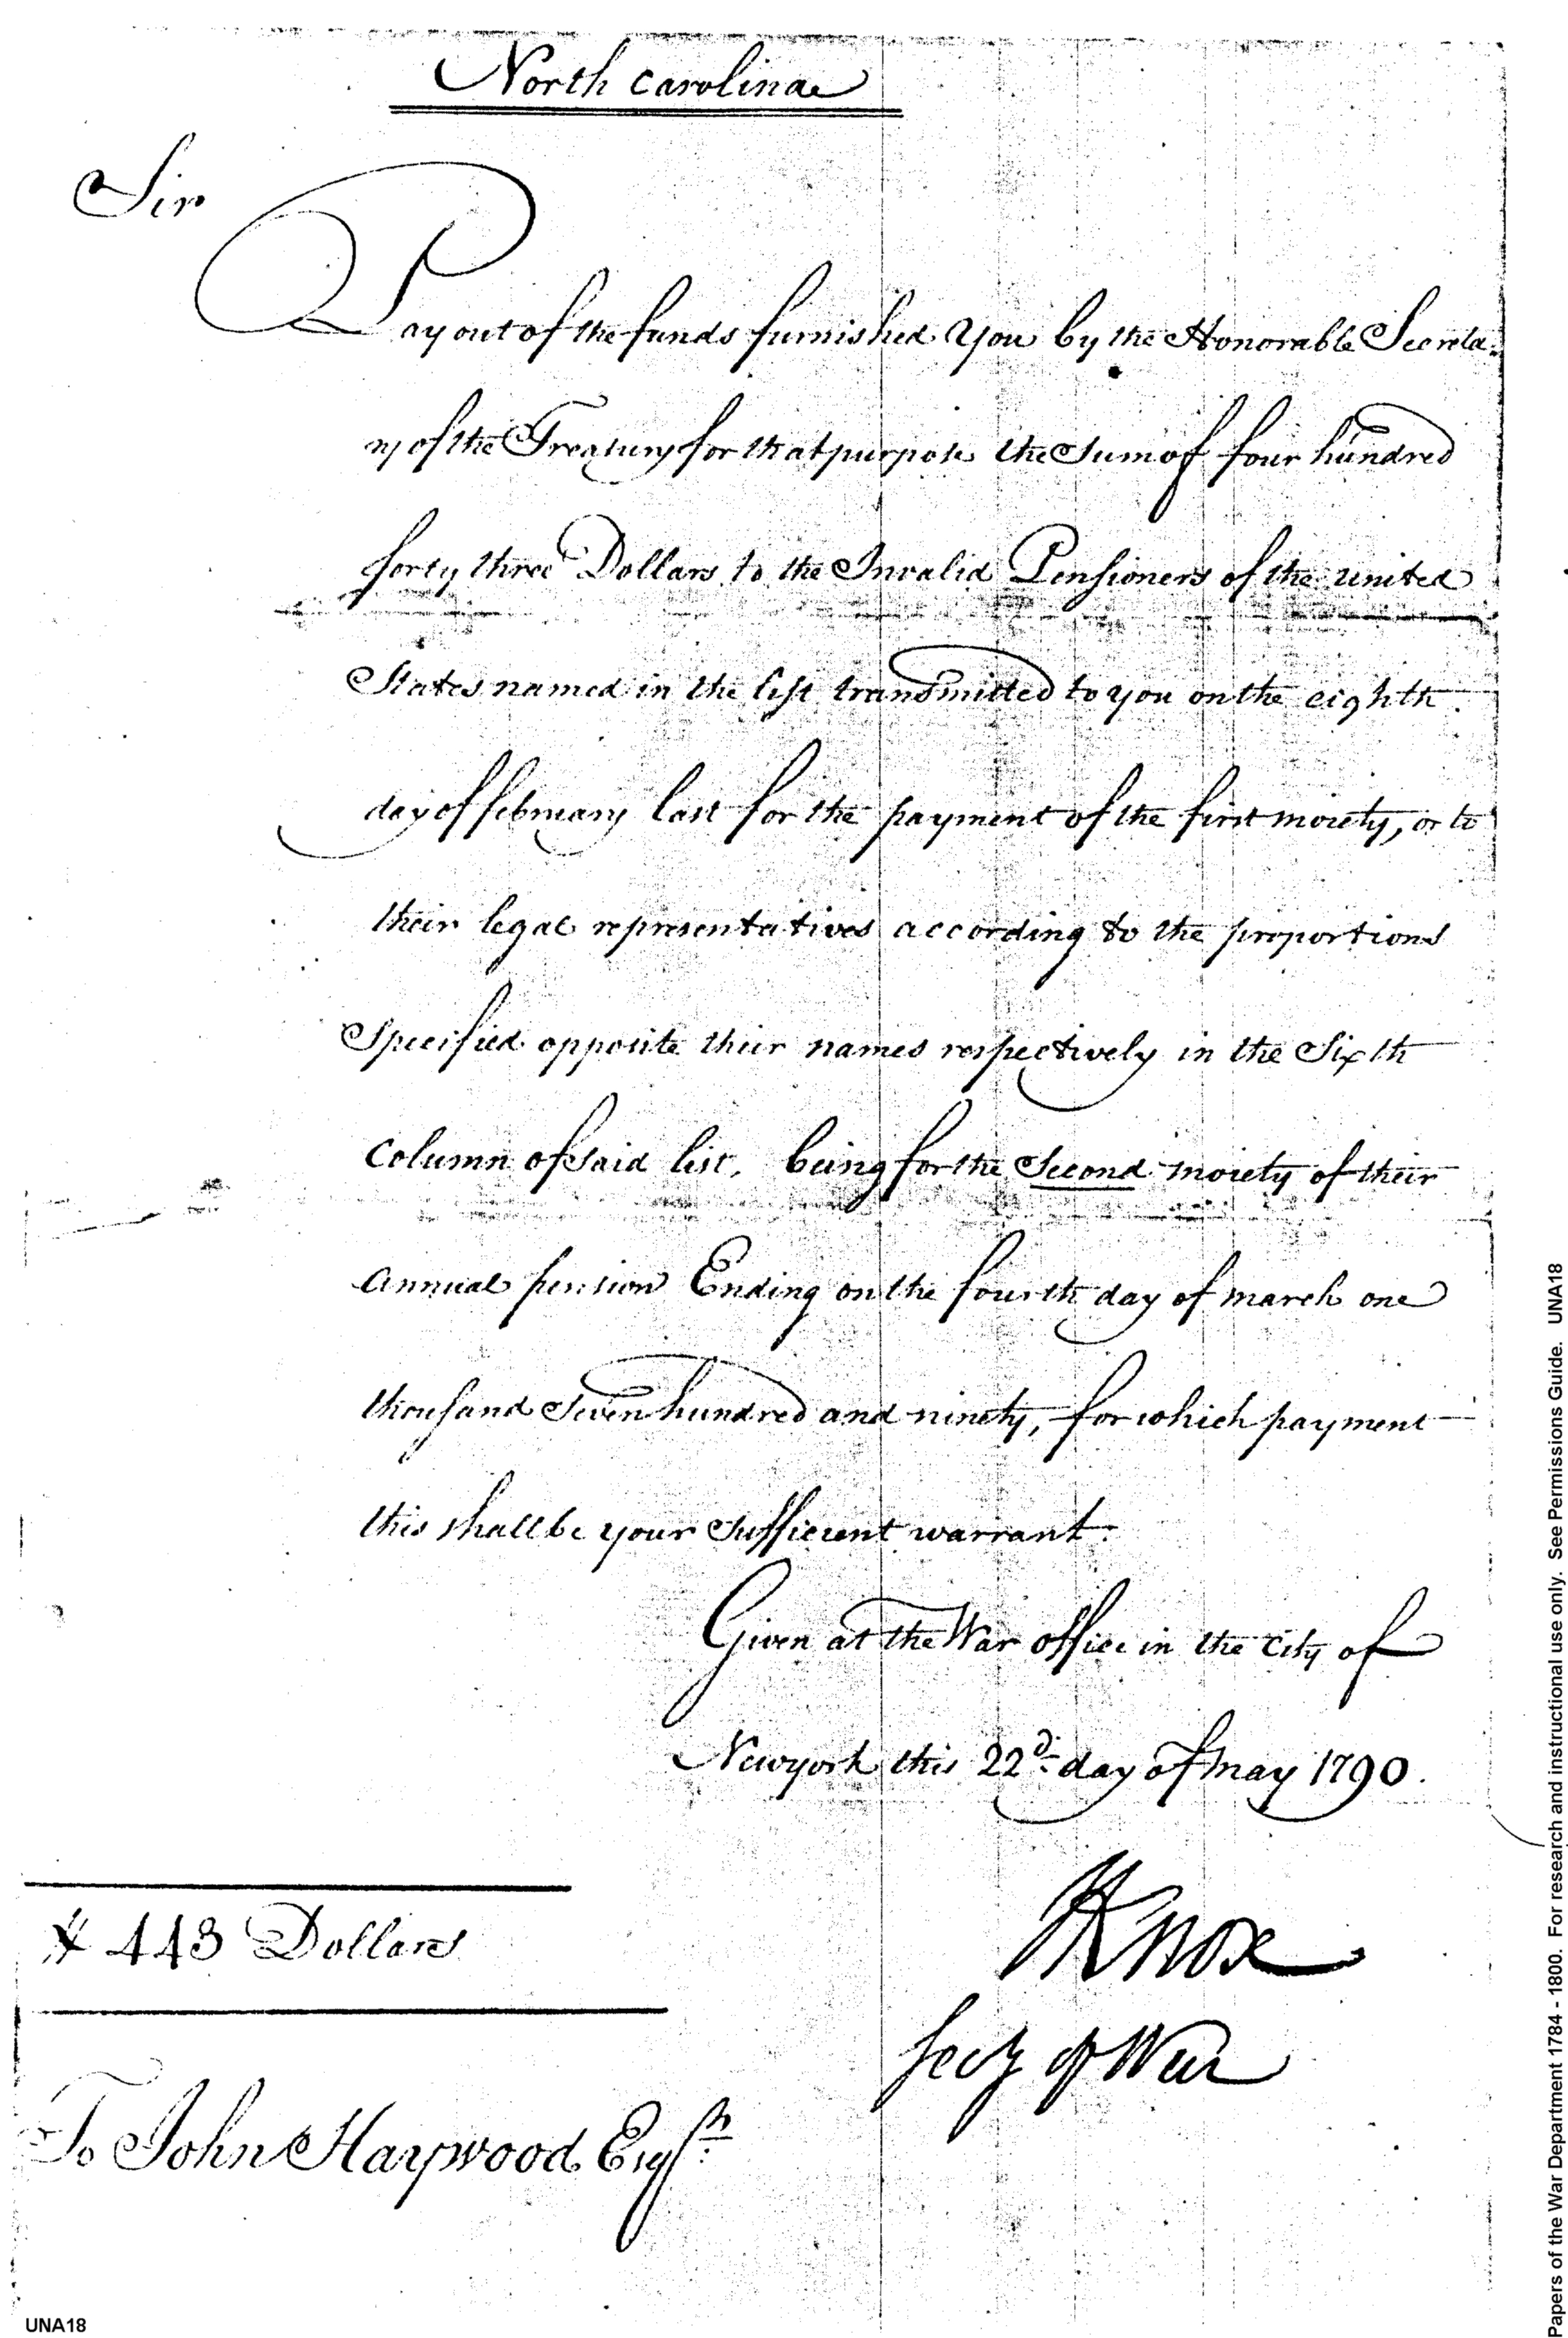 North Carolina
Sir
Pay out of the funds furnished you by the Honorable Secreta-
ry of the Treasury for that purpose the Sum of four hundred
forty three Dollars to the Invalid Pensioners of the united
States named in the list transmitted to you on the eighth
day of february last for the payment of the first moiety, or to
their legal representatives according to the proportions
Specified opposite their names respectively in the Sixth
Column of said list, being for the Second moiety of their
annual pension Ending on the fourth day of march one
thousand Seven hundred and ninety, for which payment
this shall be your Sufficient warrant.
Given at the War office in the City of
Newyork this 22d day of may 1790.
443 Dollars
HKnox
Secy of War
To John Haywood Esqr
UNA18
Papers of the War Department 1784 - 1800. For research and instructional use only. See Permissions Guide. UNA18